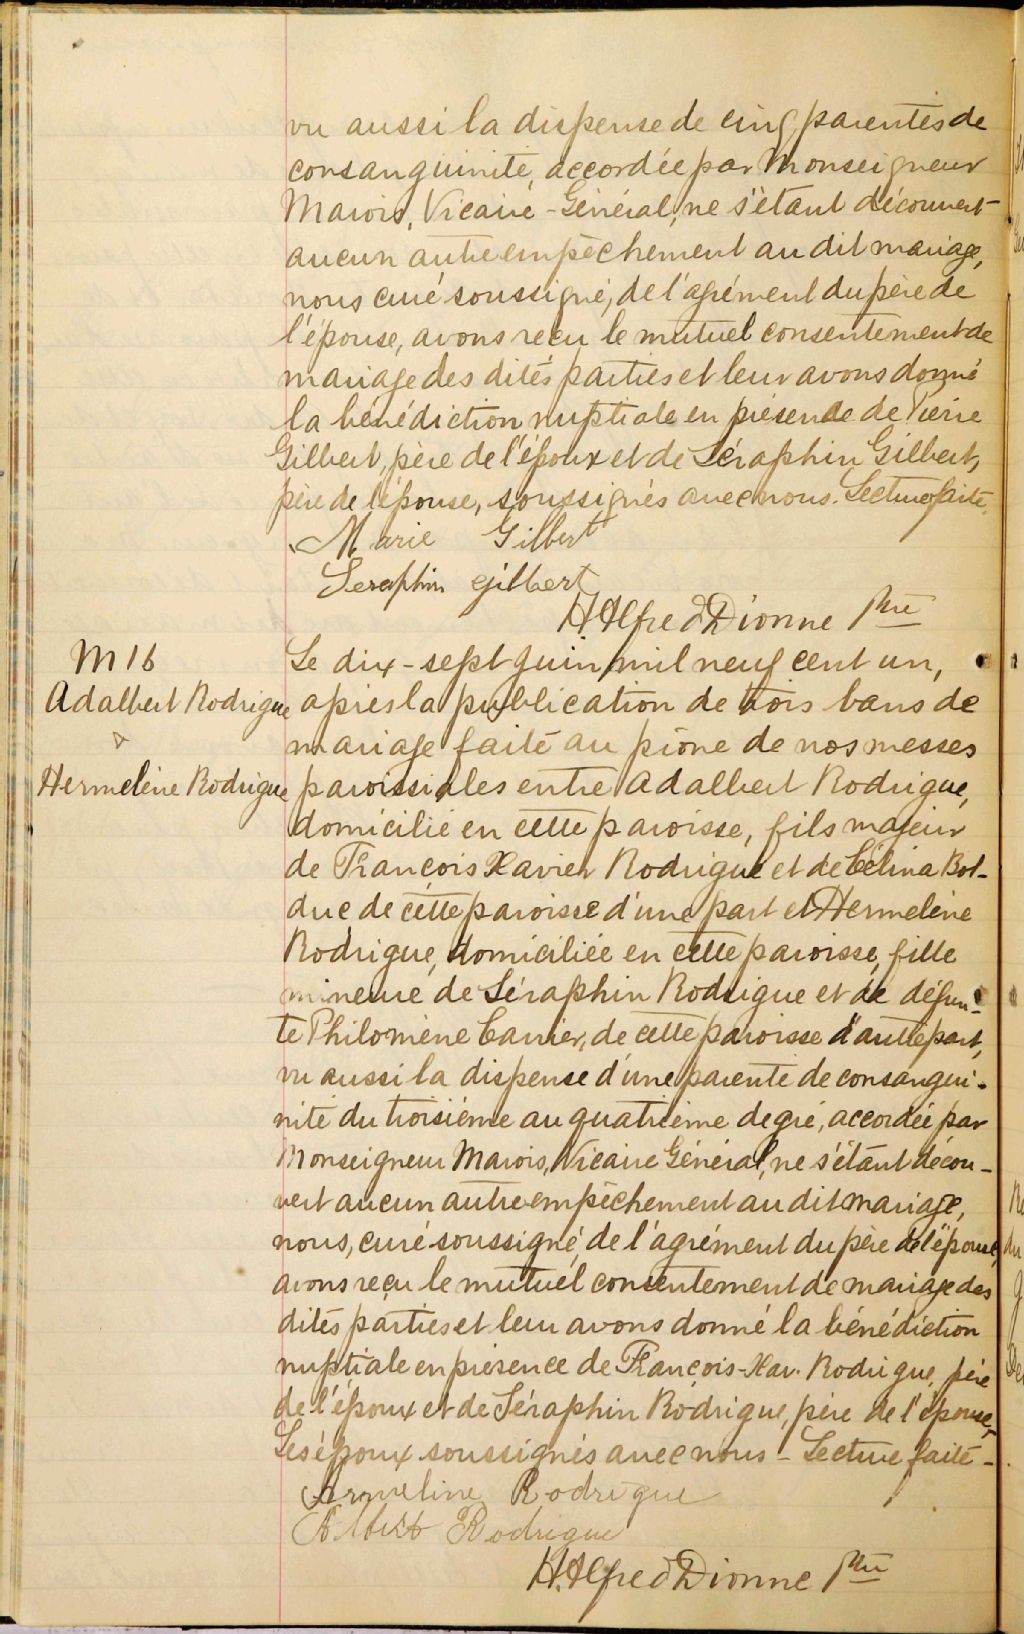 vu aussi la dispense de cinq parentés de
consanguinité, accordée par Monseigneur
Marois, Vicaire-Général, ne s'étant découvert
aucun autre empêchement au dit mariage,
nous curé soussigné, de l'agrément du père de
l'épouse, avons reçu le mutuel consentement de
mariage des dites parties et leur avons donné
la bénédiction nuptiale en présence de Pierre
Gilbert, père de l'époux et de Séraphin Gilbert,
père de l'épouse, soussignés avec nous. Lecture faite.
Marie Gilbert
Seraphin gilbert
H. Alfred Dionne Ptre
M16
Adalbert Rodrigue
&
Hermeléne Rodrigue
Le dix-sept juin, mil neuf cent un,
après la publication de trois bans de
mariage faite au prône de nos messes
paroissiales entre Adalbert Rodrigue,
domicilié en cette paroisse, fils majeur
de François Xavier Rodrigue et de Célina Bol-
duc de cette paroisse d'une part et Hermeléne
Rodrigue, domiciliée en cette paroisse, fille
mineure de Séraphin Rodrigue et de défun-
te Philomène Carrier, de cette paroisse d'autre part,
vu aussi la dispense d'une parenté de consangui-
nité du troisième au quatrième degré, accordée par
Monseigneur Marois, Vicaire Général, ne s'étant décou-
vert aucun autre empêchement au dit mariage,
nous, curé soussigné, de l'agrément du père de l'épouse,
avons reçu le mutuel consentement de mariage des
dites parties et leur avons donné la bénédiction
nuptiale en présence de François-Xav. Rodrigue, père
de l'époux et de Séraphin Rodrigue, père de l'épouse,
Les époux soussignés avec nous - Lecture faite -
Armeline Rodrigue
Albert Rodrigue
H. Alfred Dionne Ptre